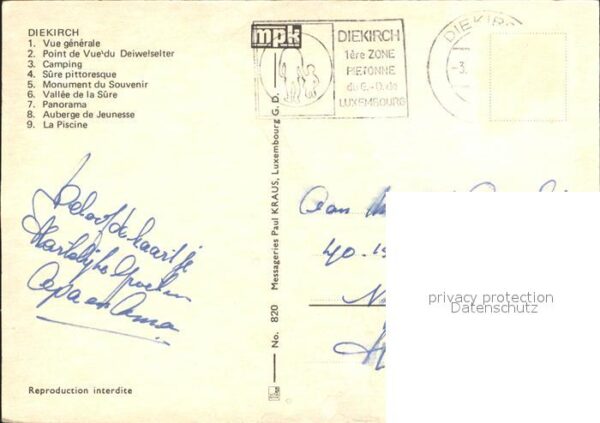 DIEKIRCH
1. Vue générale
2. Point de Vue du Deiwelselter
3. Camping
4. Sûre pittoresque
5. Monument du Souvenir
6. Vallée de la Sûre
7. Panorama
8. Auberge de Jeunesse
9. La Piscine
mpk
DIEKIRCH
1ère ZONE
PIETONNE
du G.-D. de
LUXEMBOURG
DIEKIR
-3.
Beloofde kaartje
Hartelijke Groeten
Opa en Oma
No. 820 Messageries Paul KRAUS, Luxembourg G. D.
Aan
40-
privacy protection
Datenschutz
Reproduction interdite